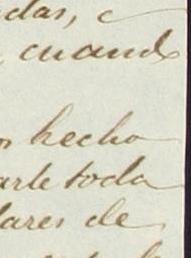 das, e
cuando
hecho
arle toda
lares de